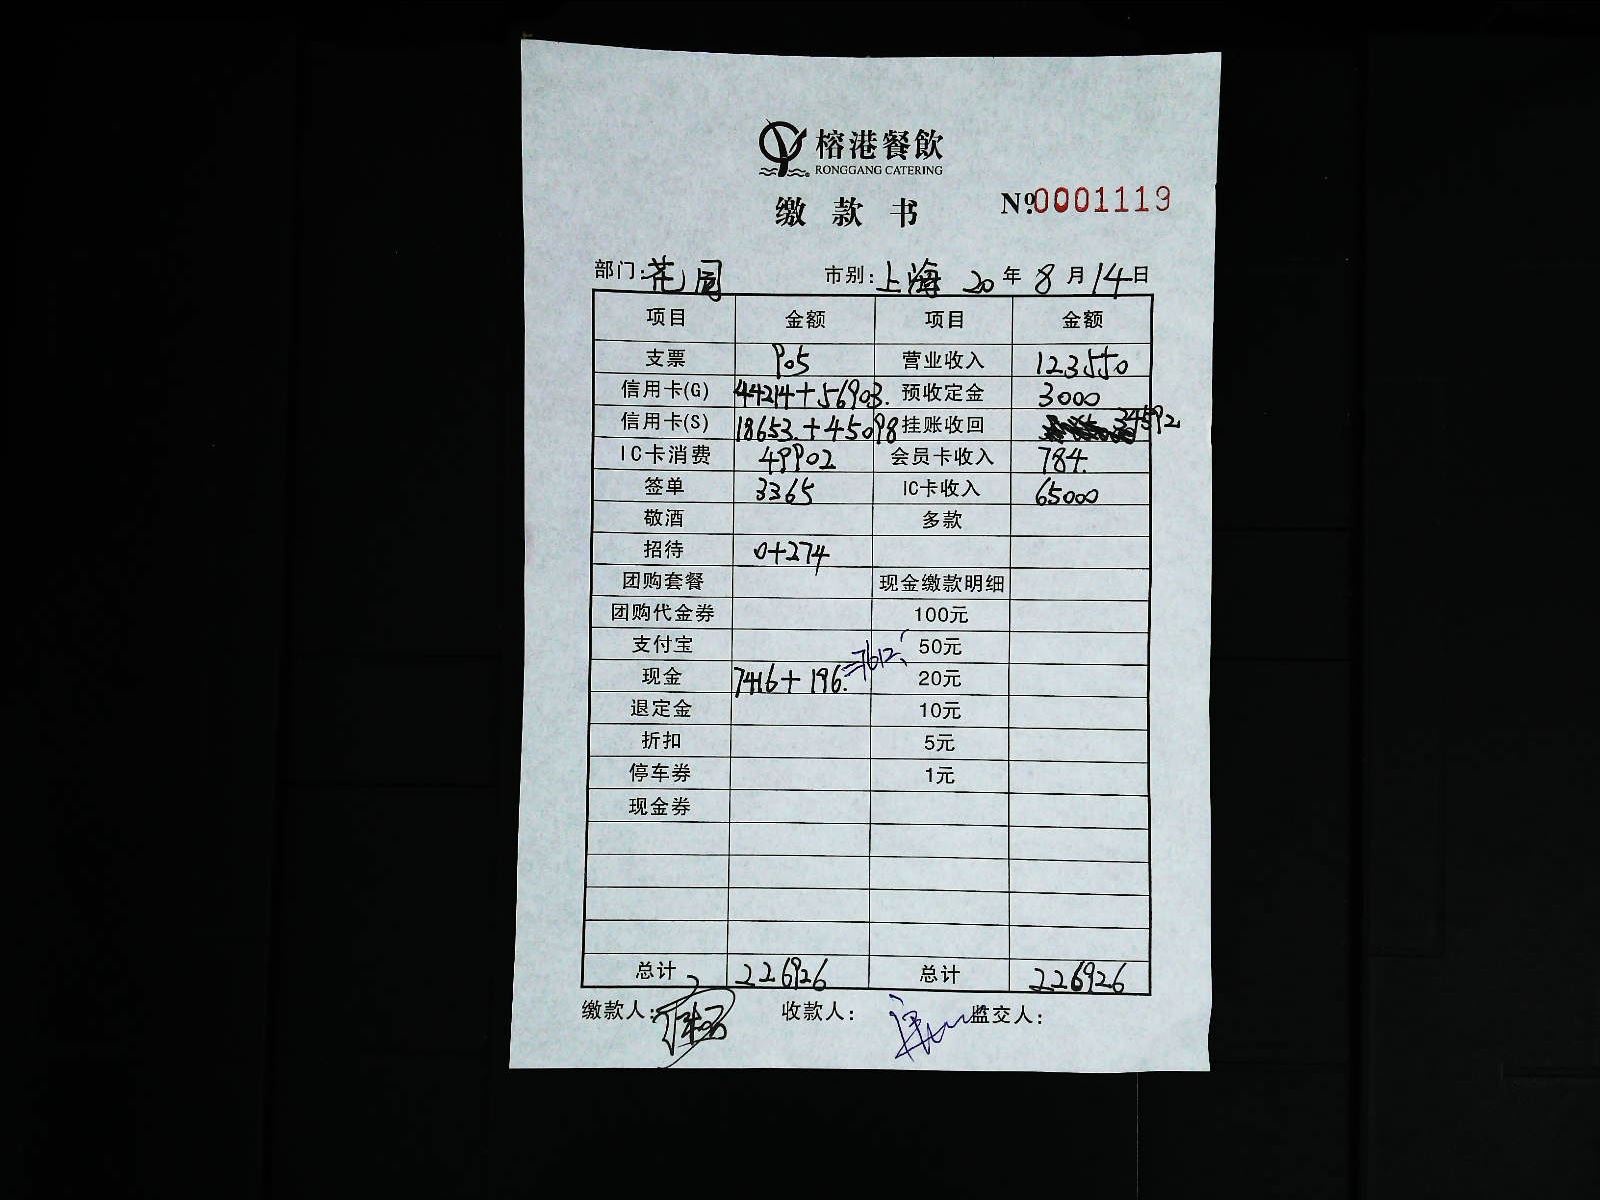 榕港餐飲
RONGGANG CATERING
缴款书 Nº0001119
部门:花园 市别:上海 20年8月14日
项目 金额 项目 金额
支票 905 营业收入 123550
信用卡(G) 44214+56903. 预收定金 3000
信用卡(S) 18653.+45098 挂账收回 34592
IC卡消费 49902 会员卡收入 784.
签单 3365 IC卡收入 65000
敬酒 多款
招待 0+274
团购套餐 现金缴款明细
团购代金券 100元
支付宝 50元
现金 7416+196.=7612. 20元
退定金 10元
折扣 5元
停车券 1元
现金券
总计 226926 总计 226926
缴款人: 收款人: 监交人: